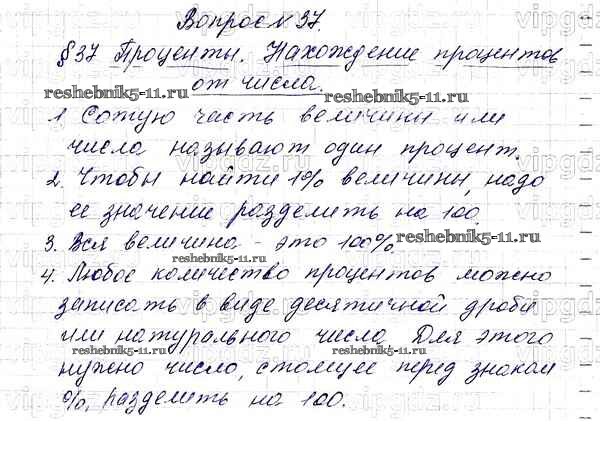 Вопрос № 37.
§37 Проценты. Нахождение процентов
от числа.
reshebnik5-11.ru reshebnik5-11.ru
1 Сотую часть величины или
числа называют один процент.
2. Чтобы найти 1% величины, надо
ее значение разделить на 100.
3. Вся величина - это 100% reshebnik5-11.ru
4. Любое количество процентов можно
записать в виде десятичной дроби
или натурального числа. Для этого
reshebnik5-11.ru reshebnik5-11.ru
нужно число, стоящее перед знаком
%, разделить на 100.